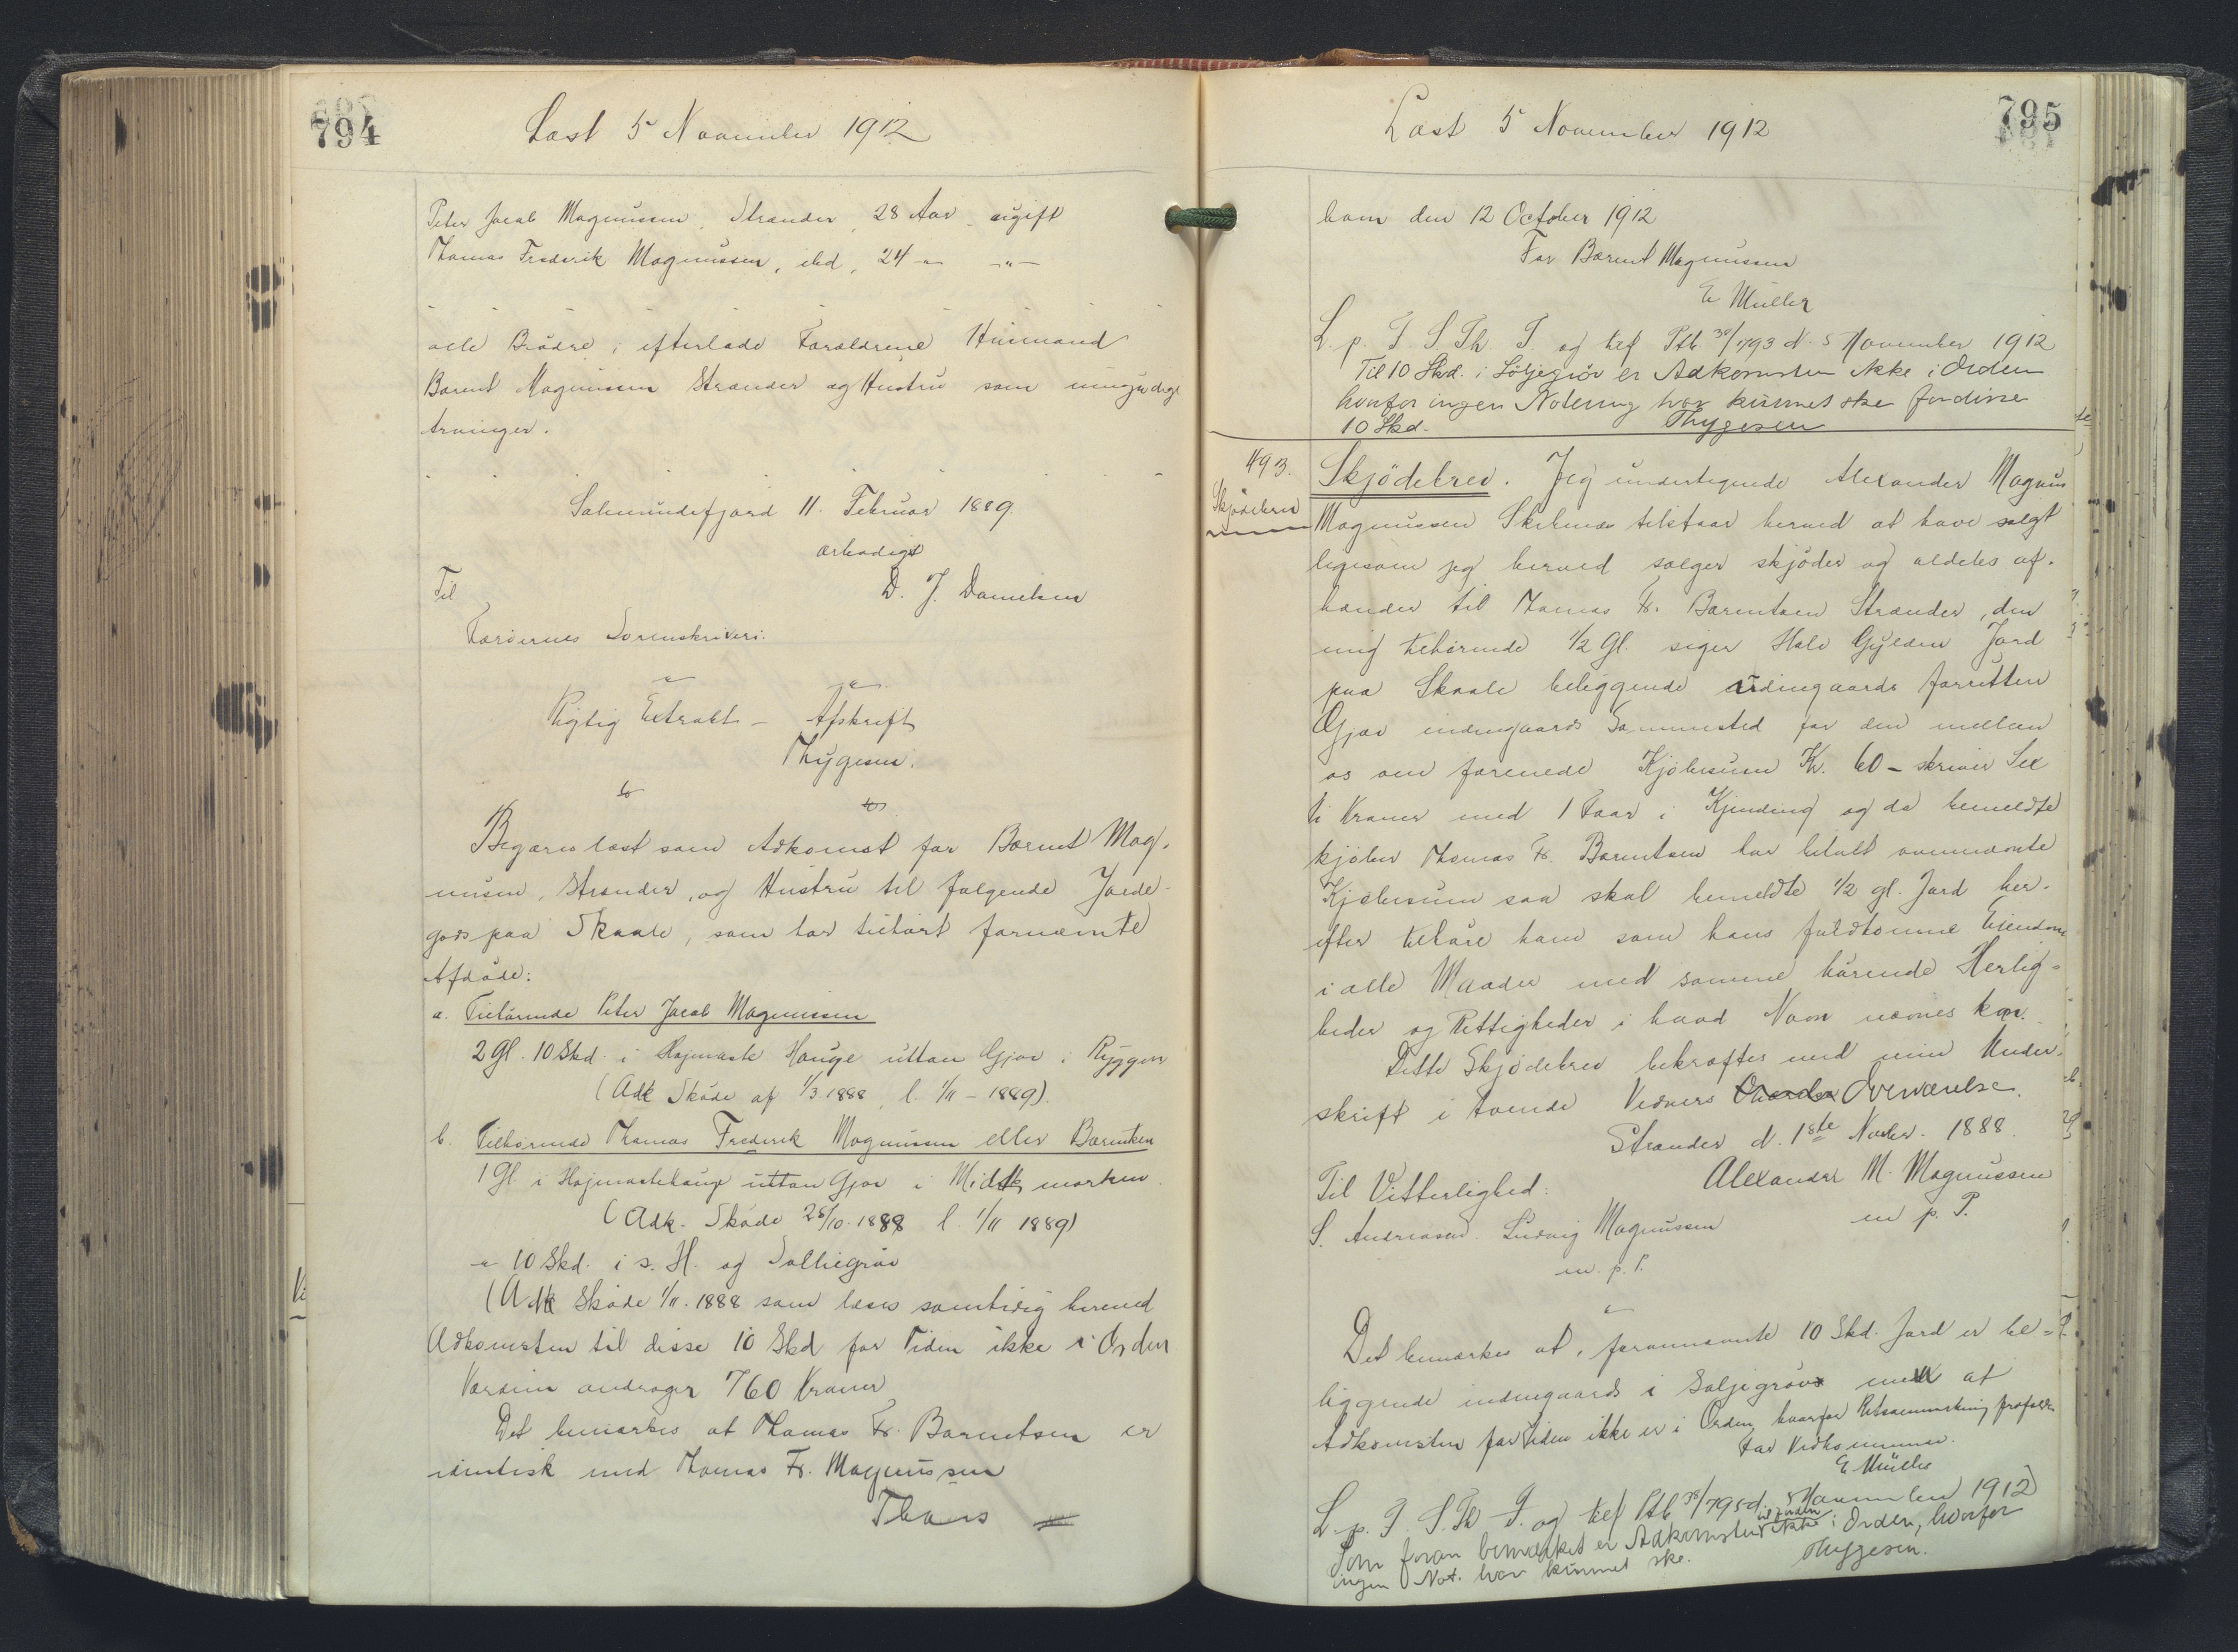 794
Læst 5 November 1912
Peter Jacob Magnussen, Strænder, 28 Aar, ugift
Thomas Frederik Magnussen, ibd, 24 -"- -"-
alle Brødre, i efterlade Forældrene Huusmand
Barent Magnussen Strænder og Hustru som
Arvinger.
11. Februar 1889.
ærbødigst
D. J. Danielsen
Til
Færøernes Sorenskriveri.
Rigtig Extrakt - Afskrift
Thygesen.
Begæres læst som Adkomst for Barent Mag-
nusen, Strænder, og Hustru til følgende Jorde-
gods paa Skaale, som har tilhørt fornævnte
Afdøde:
a. Tilhørende Peter Jacob Magnussen
2 Gl. 10 Skd. i Højmaste Hauge uttan Gjov i Ryggen
(Adk Skøde af 1/3 1888, l. 1/11 - 1889).
b. Tilhørende Thomas Frederik Magnussen eller Barentsen
1 Gl i Højmastehauge uttan Gjov i marken
(Adk. Skøde 28/10. 1888 l. 1/11 1889)
" 10 Skd. i s. H. og
(Adk Skøde 1/11. 1888 som læses samtidig hermed
Adkomsten til disse 10 Skd for Tiden ikke i Orden
Værdien andrager 760 Kroner
Det bemærkes at Thomas Fr. Barentsen er
identisk med Thomas Fr. Magnussen
795
Læst 5 November 1912
ham den 12 October 1912
For Barent Magnussen
E Müller
L. p. F. S. Th. T. og tilf Ptb. 38/793 d. 5 November 1912
Til 10 Skd. i er Adkomsten ikke i Orden
hvorfor ingen Notering har kunnet ske for disse
10 Skd. Thygesen
493.
Skjødebrev
Skjödebrev. Jeg undertegnede Alexander Magnus
Magnussen tilstaar herved at have solgt
ligesom jeg herved sælger skjøder og aldeles af-
hænder til Thomas Fr. Barentsen Strænder, den
mig tilhørende 1/2 Gl. siger Halv Gylden Jord
paa Skaale beliggende udengaards
Gjov indengaards for den mellem
os om forenede Kjøbesum Kr. 60 - skriver Sex
ti Kroner med 1 Faar i Kjending og da bemeldte
kjøber Thomas Fr. Barentsen har betalt ovennævnte
Kjøbesum saa skal bemeldte 1/2 gl. Jord her-
efter tilhøre ham som hans fuldkomne Eiendom
i alle Maader med samme hørende Herlig-
heder og Rettigheder i hvad Navn nævnes kan.
Dette Skjødebrev bekræftes med min Under-
skrift i tvende Vidners Overværelse.
Strænder d. 1ste Novbr. 1888.
Til Vitterlighed: Alexander M. Magnussen
S. Andreasen. Ludvig Magnussen m p. P.
m. p. P.
Det bemærkes at, forannævnte 10 Skd. Jord er be-
liggende indengaards i men at
Adkomsten for Tiden ikke er i Orden, hvorfor
For Vedkommende.
E Müller
L. p. F. S. Th T. og tilf Ptb 38/795 d. 5 November 1912
Som foran bemærket er Adkomsten ikke i Orden, hvorfor
ingen Not. har kunnet ske. Thygesen.